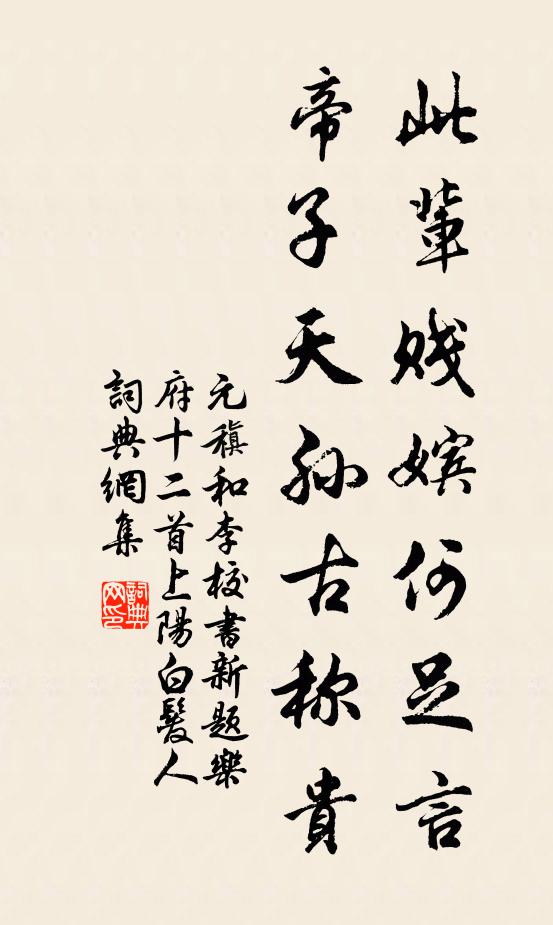 此輩賤嬪何足言
帝子天孫古称貴
元稹和李校書新題樂
府十二首上陽白髮人
詞典網集
詞典
网印